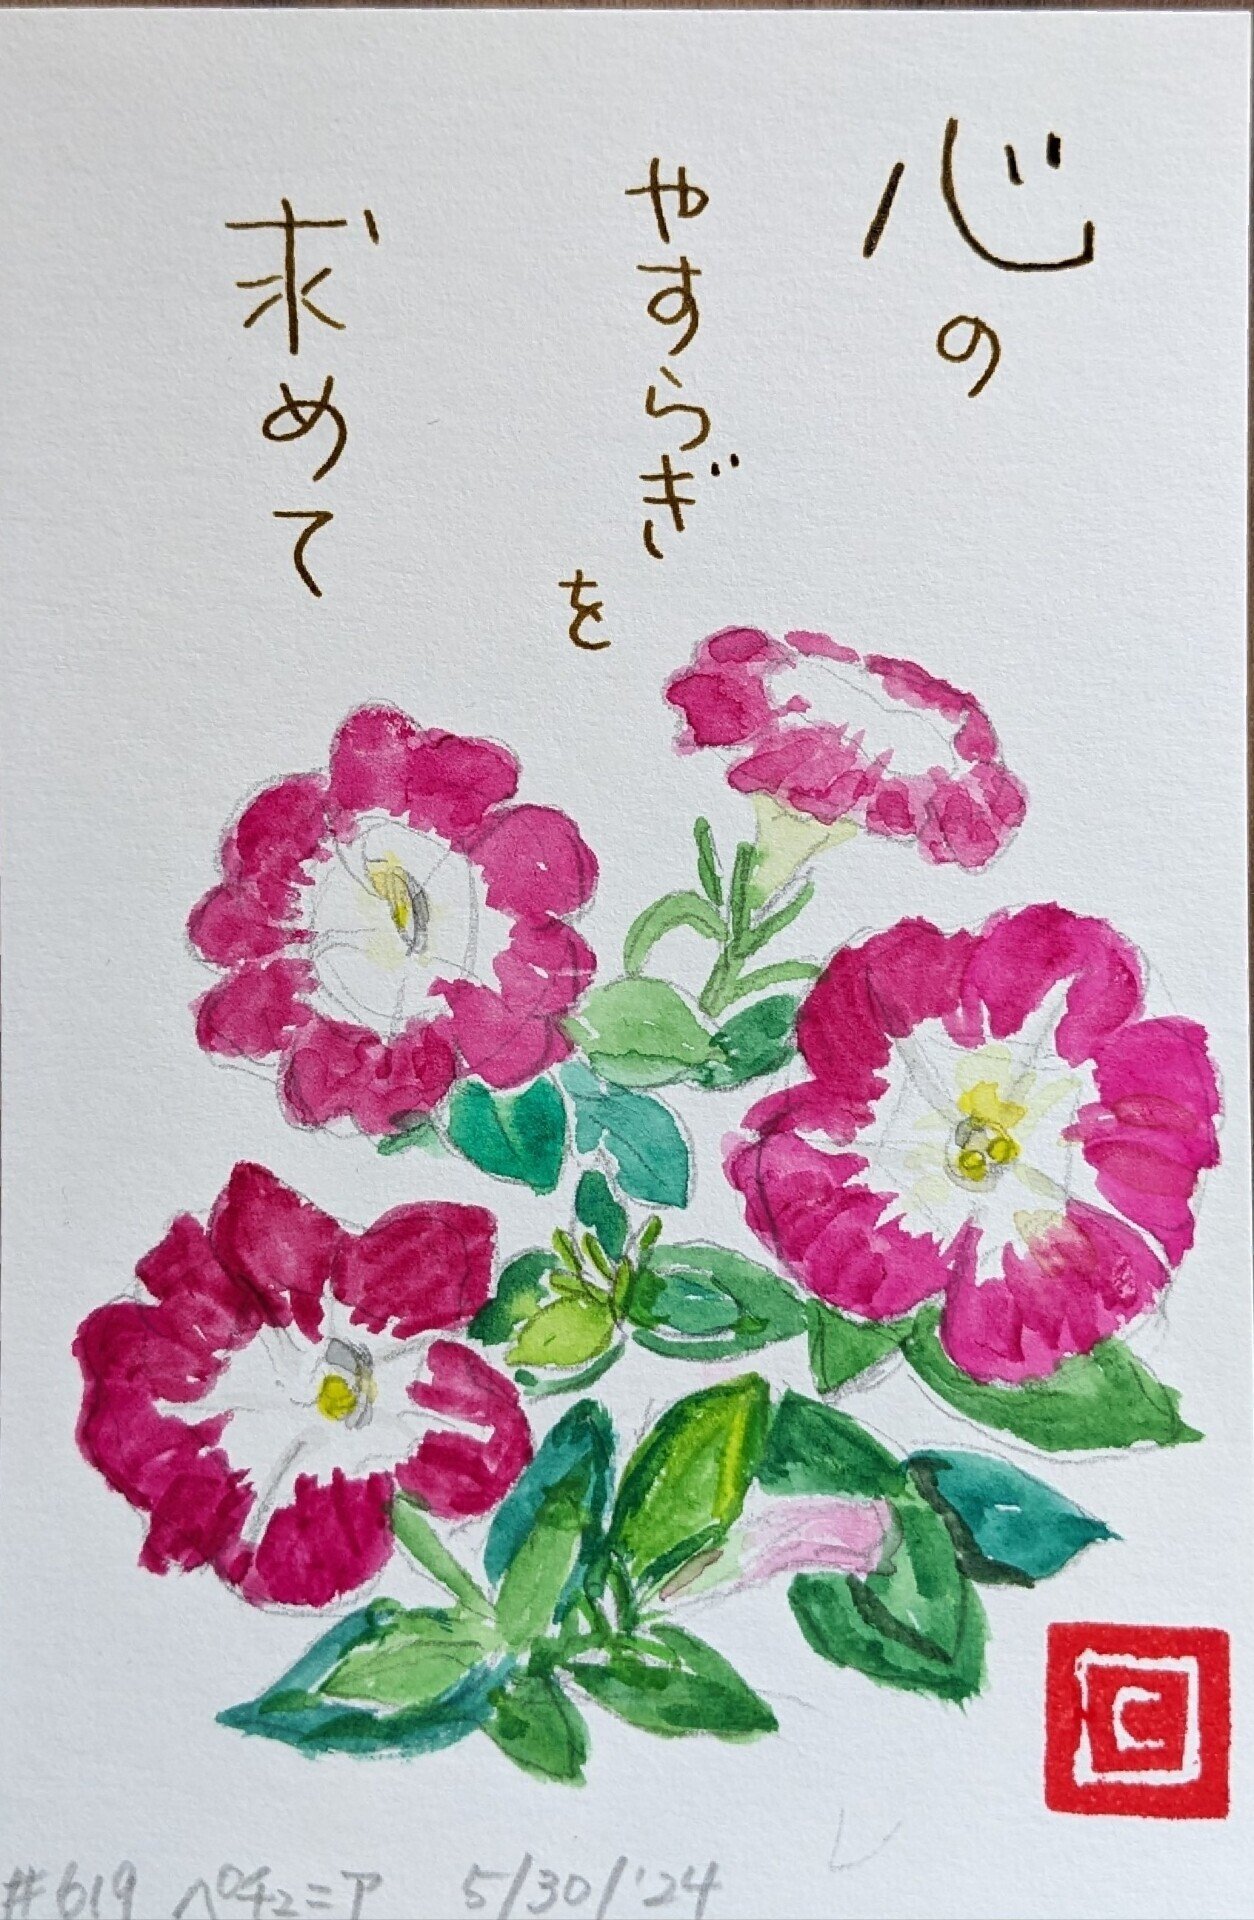 心の
やすらぎを
求めて
#619 ペチュニア 5/30/'24